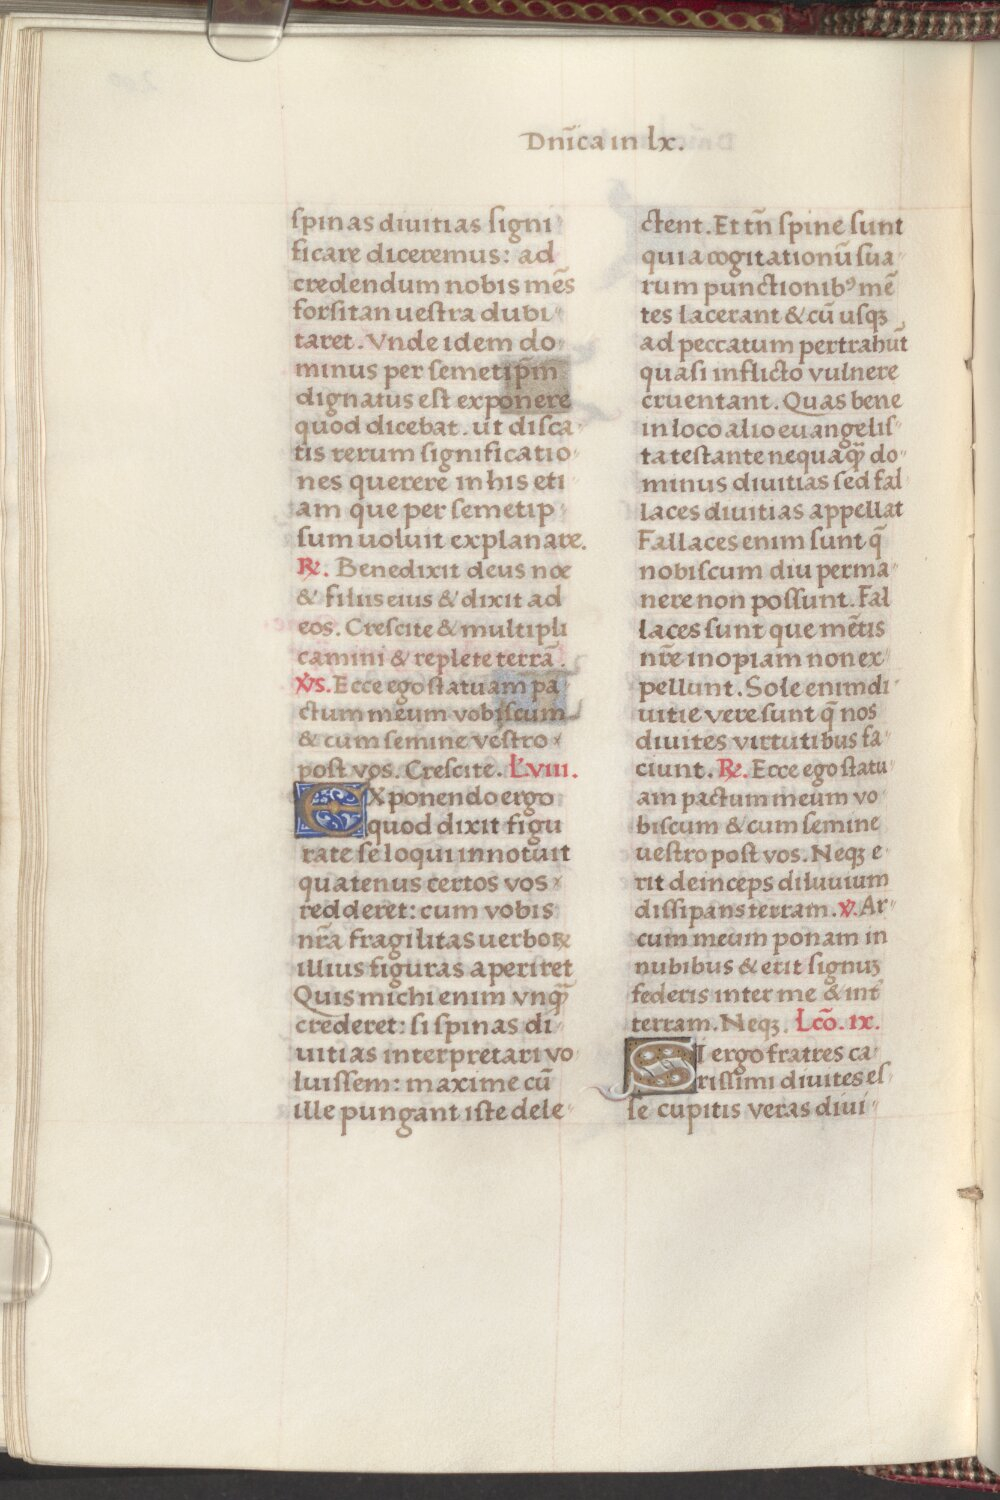 Dnīca in lx.
spinas diuitias signi
ficare diceremus: ad
credendum nobis mēs
forsitan uestra dubi
taret. Vnde idem do
minus per semetip̄m
dignatus est exponere
quod dicebat. ut disca
tis rerum significatio
nes querere in his eti
am que per semetip
sum uoluit explanare.
℟. Benedixit deus noe
& filiis eius & dixit ad
eos. Crescite & multipli
camini & replete terrā.
V̇S. Ecce ego statuam pa
ctum meum vobiscum
& cum semine vestro
post vos. Crescite. Ł.viii.
Exponendo ergo
quod dixit figu
rate se loqui innotuit
quatenus certos vos
redderet: cum vobis
nr̄a fragilitas uerboꝝ
illius figuras aperiret
Quis michi enim vnqꝫ̄
crederet: si spinas di
uitias interpretari vo
luissem: maxime cū
ille pungant iste dele
ctent. Et tn̄ spine sunt
quia cogitationū sua
rum punctionibꝰ mē
tes lacerant & cū usqꝫ
ad peccatum pertrahūt
quasi inflicto vulnere
cruentant. Quas bene
in loco alio euangelis
ta testante nequaqꝫ̄ do
minus diuitias sed fal
laces diuitias appellat
Fallaces enim sunt q̄
nobiscum diu perma
nere non possunt. Fal
laces sunt que mētis
nr̄e inopiam non ex
pellunt. Sole enim di
uitie vere sunt q̄ nos
diuites virtutibus fa
ciunt. ℟. Ecce ego statu
am pactum meum vo
biscum & cum semine
uestro post vos. Neqꝫ e
rit deinceps diluuium
dissipans terram. ℣. Ar
cum meum ponam in
nubibus & erit signuꝫ
federis inter me & int̄
terram. Neqꝫ. Lcō. ix.
SI ergo fratres ca
rissimi diuites es
se cupitis veras diui